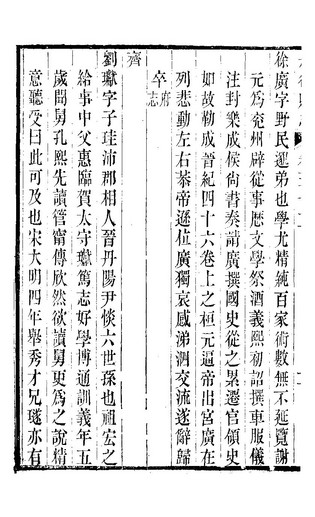 徐廣字野民邈弟也學尤精純百家術數無不延覽謝
元爲兖州辟從事歷文學祭酒義熙初詔撰車服儀
注封樂成侯尚書奏請廣撰國史從之累遷官領史
如故勒成晉紀四十六卷上之桓元逼帝出宮廣在
列悲動左右恭帝遜位廣獨哀感涕泗交流遂辭歸
卒府志
齊
劉瓛字子珪沛郡相人晉丹陽尹惔六世孫也祖宏之
給事中父惠臨賀太守瓛篤志好學博通訓義年五
歲聞舅孔熙先讀管甯傳欣然欲讀舅更爲之說精
意聽受曰此可及也宋大明四年舉秀才兄璲亦有